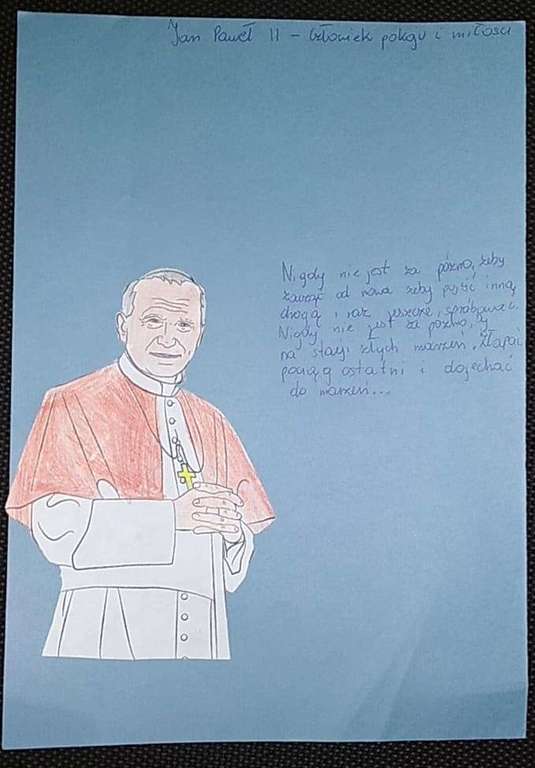 Jan Paweł II - Człowiek pokoju i miłości
Nigdy nie jest za późno, żeby
zacząć od nowa żeby pójść inną
drogą i raz jeszcze spróbować.
Nigdy nie jest za późno, by
na stacji złych marzeń, złapać
pociąg ostatni i dojechać
do marzeń...